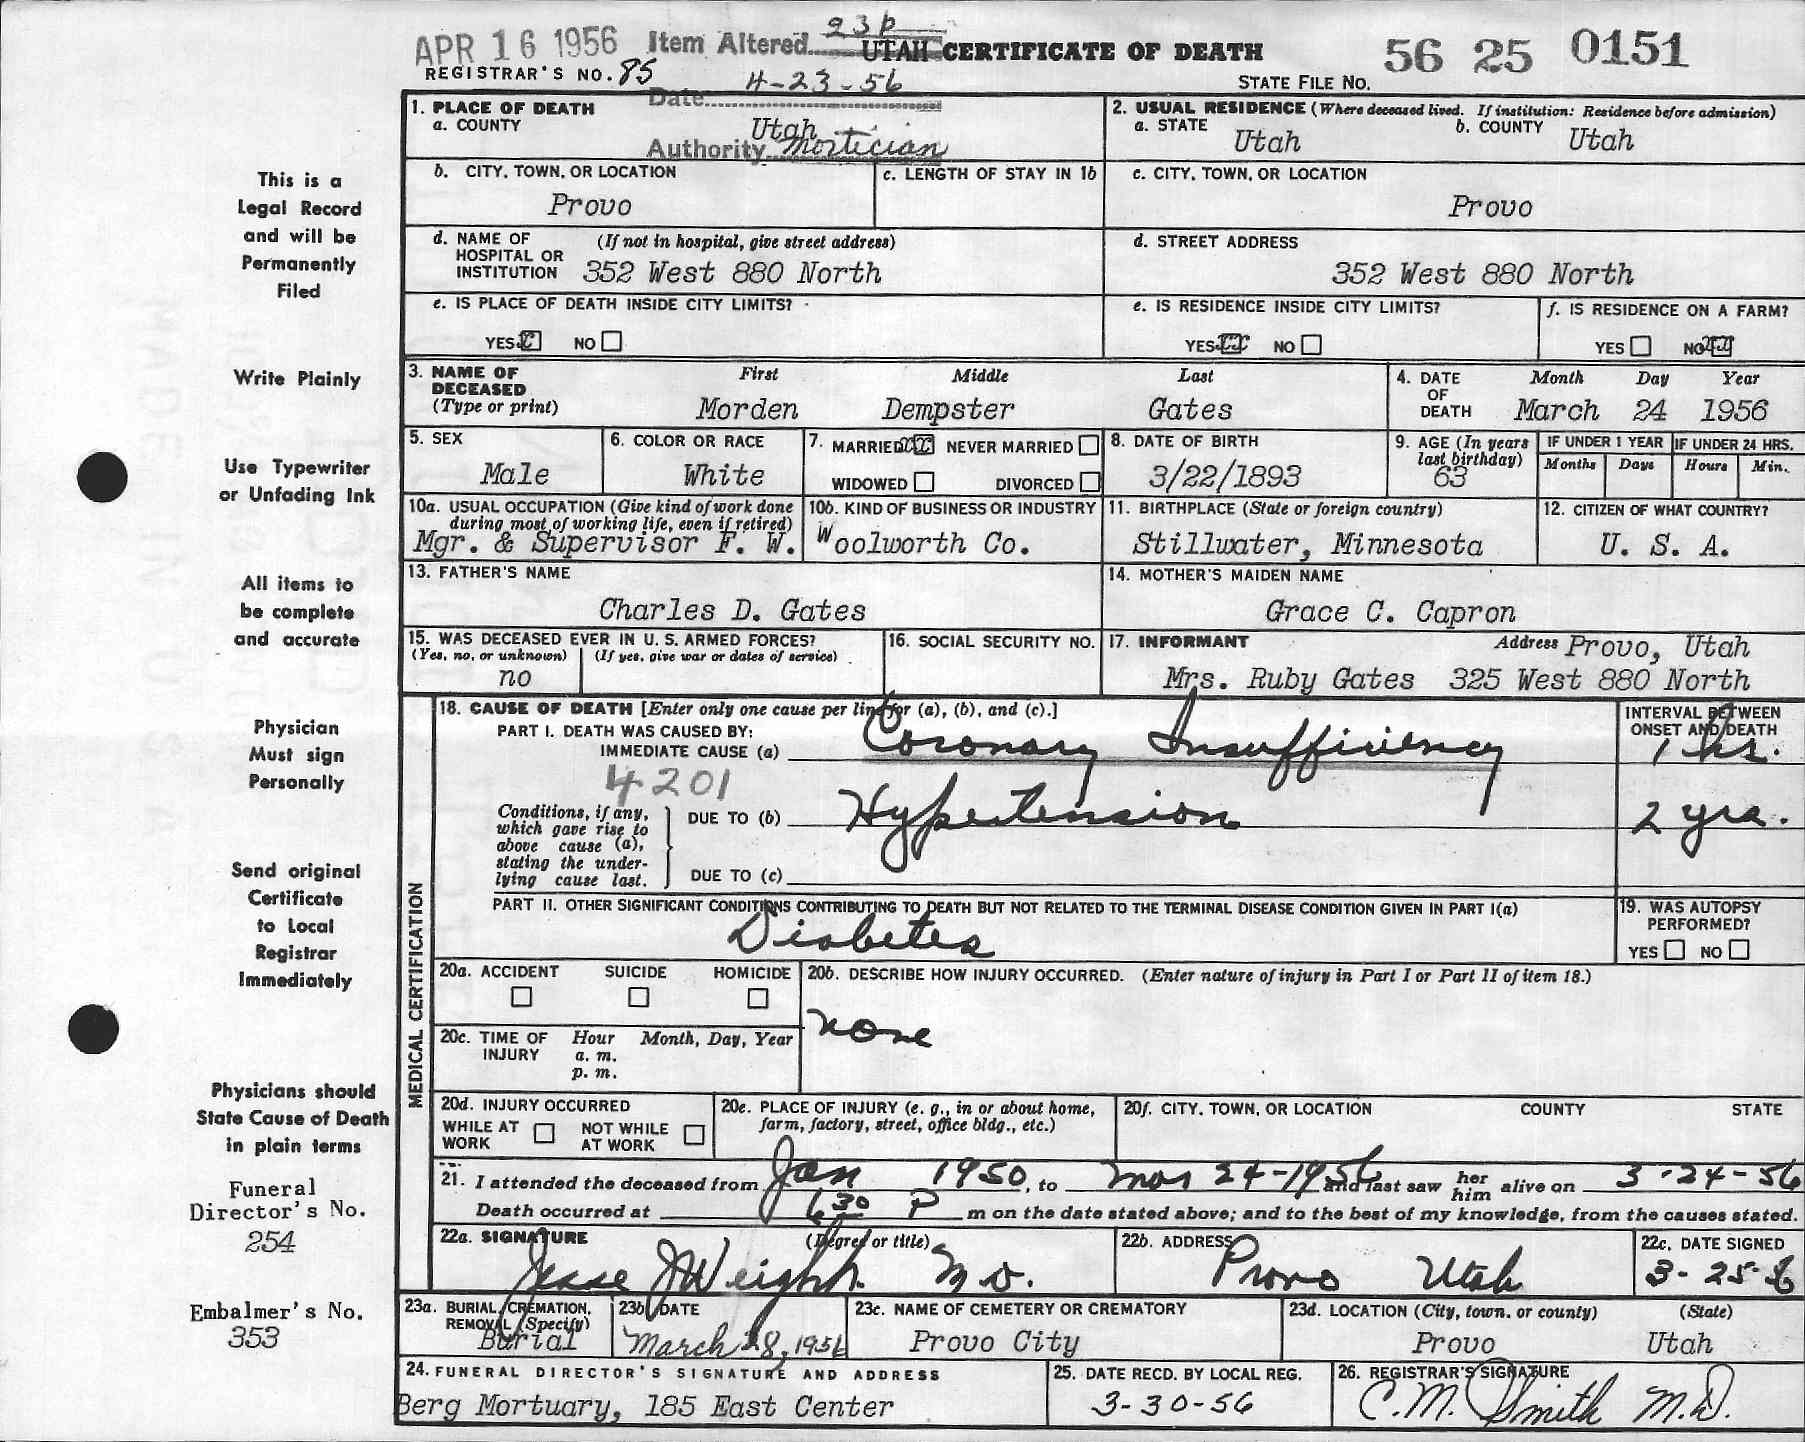 APR 16 1956 Item Altered 23b UTAH CERTIFICATE OF DEATH 56 25 0151
REGISTRAR'S NO. 85 Date 4-23-56 STATE FILE NO.
Authority Mortician
1. PLACE OF DEATH
a. COUNTY Utah
2. USUAL RESIDENCE (Where deceased lived. If institution: Residence before admission)
a. STATE Utah b. COUNTY Utah
b. CITY, TOWN, OR LOCATION Provo
c. LENGTH OF STAY IN 1b
c. CITY, TOWN, OR LOCATION Provo
d. NAME OF HOSPITAL OR INSTITUTION (If not in hospital, give street address)
352 West 880 North
d. STREET ADDRESS
352 West 880 North
e. IS PLACE OF DEATH INSIDE CITY LIMITS?
YES X NO
e. IS RESIDENCE INSIDE CITY LIMITS?
YES XX NO
f. IS RESIDENCE ON A FARM?
YES NO XX
3. NAME OF DECEASED (Type or print)
First Middle Last
Morden Dempster Gates
4. DATE OF DEATH Month Day Year
March 24 1956
5. SEX Male
6. COLOR OR RACE White
7. MARRIED XX NEVER MARRIED
WIDOWED DIVORCED
8. DATE OF BIRTH 3/22/1893
9. AGE (In years last birthday) 63
IF UNDER 1 YEAR Months Days
IF UNDER 24 HRS. Hours Min.
10a. USUAL OCCUPATION (Give kind of work done during most of working life, even if retired)
Mgr. & Supervisor F. W.
10b. KIND OF BUSINESS OR INDUSTRY
Woolworth Co.
11. BIRTHPLACE (State or foreign country)
Stillwater, Minnesota
12. CITIZEN OF WHAT COUNTRY?
U. S. A.
13. FATHER'S NAME
Charles D. Gates
14. MOTHER'S MAIDEN NAME
Grace C. Capron
15. WAS DECEASED EVER IN U. S. ARMED FORCES?
(Yes, no, or unknown) (If yes, give war or dates of service)
no
16. SOCIAL SECURITY NO.
17. INFORMANT Address Provo, Utah
Mrs. Ruby Gates 325 West 880 North
MEDICAL CERTIFICATION
18. CAUSE OF DEATH [Enter only one cause per line for (a), (b), and (c).]
PART I. DEATH WAS CAUSED BY:
IMMEDIATE CAUSE (a) Coronary Insufficiency
INTERVAL BETWEEN ONSET AND DEATH
1 hr.
4201
Conditions, if any, which gave rise to above cause (a), stating the underlying cause last.
DUE TO (b) Hypertension 2 yrs.
DUE TO (c)
PART II. OTHER SIGNIFICANT CONDITIONS CONTRIBUTING TO DEATH BUT NOT RELATED TO THE TERMINAL DISEASE CONDITION GIVEN IN PART I(a)
Diabetes
19. WAS AUTOPSY PERFORMED?
YES NO
20a. ACCIDENT SUICIDE HOMICIDE
20b. DESCRIBE HOW INJURY OCCURRED. (Enter nature of injury in Part I or Part II of item 18.)
none
20c. TIME OF INJURY Hour a. m. p. m. Month, Day, Year
20d. INJURY OCCURRED
WHILE AT WORK NOT WHILE AT WORK
20e. PLACE OF INJURY (e. g., in or about home, farm, factory, street, office bldg., etc.)
20f. CITY, TOWN, OR LOCATION COUNTY STATE
21. I attended the deceased from Jan 1950, to Mar 24-1956 and last saw her him alive on 3-24-56
Death occurred at 6 30 P m on the date stated above; and to the best of my knowledge, from the causes stated.
22a. SIGNATURE (Degree or title)
Jesse J Weight. M D.
22b. ADDRESS
Provo Utah
22c. DATE SIGNED
3-25-56
23a. BURIAL, CREMATION, REMOVAL (Specify)
Burial
23b. DATE
March 28, 1956
23c. NAME OF CEMETERY OR CREMATORY
Provo City
23d. LOCATION (City, town, or county) (State)
Provo Utah
24. FUNERAL DIRECTOR'S SIGNATURE AND ADDRESS
Berg Mortuary, 185 East Center
25. DATE RECD. BY LOCAL REG.
3-30-56
26. REGISTRAR'S SIGNATURE
C. M. Smith M.D.
This is a
Legal Record
and will be
Permanently
Filed
Write Plainly
Use Typewriter
or Unfading Ink
All items to
be complete
and accurate
Physician
Must sign
Personally
Send original
Certificate
to Local
Registrar
Immediately
Physicians should
State Cause of Death
in plain terms
Funeral
Director's No.
254
Embalmer's No.
353